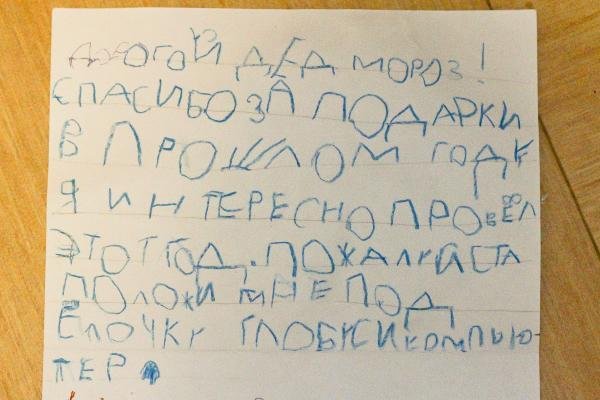 ДОРОГОЙ ДЕД МОРОЗ!
СПАСИБО ЗА ПОДАРКИ
В ПРОШЛОМ ГОДУ
Я ИНТЕРЕСНО ПРОВЁЛ
ЭТОТ ГОД. ПОЖАЛУЙСТА
ПОЛОЖИ МНЕ ПОД
ЁЛОЧКУ ГЛОБУС И КОМПЬЮ-
ТЕР